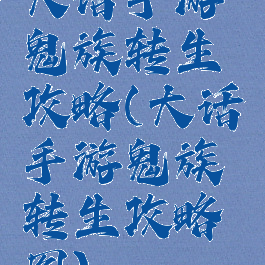 大话手游
鬼族转生
攻略(大话
手游鬼族
转生攻略
图)